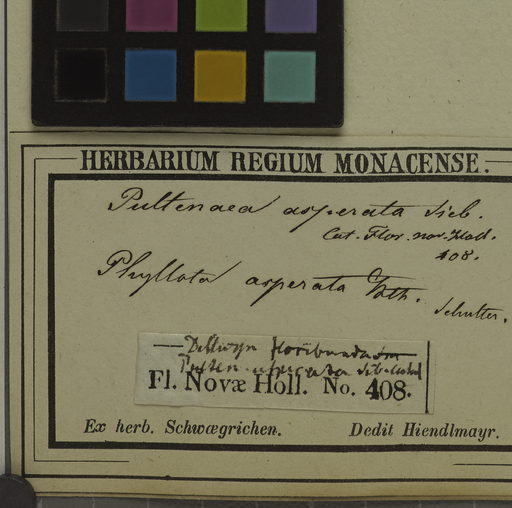 HERBARIUM REGIUM MONACENSE.
Pultenaea asperata Sieb.
Cat. Flor. nov. Holl.
408.
Phyllota asperata Bth.
Schulter.
Dillwyn floribunda Sm
Pulten. asperata Sieb.
Fl. Novæ Holl. No. 408.
Ex herb. Schwægrichen. Dedit Hiendlmayr.